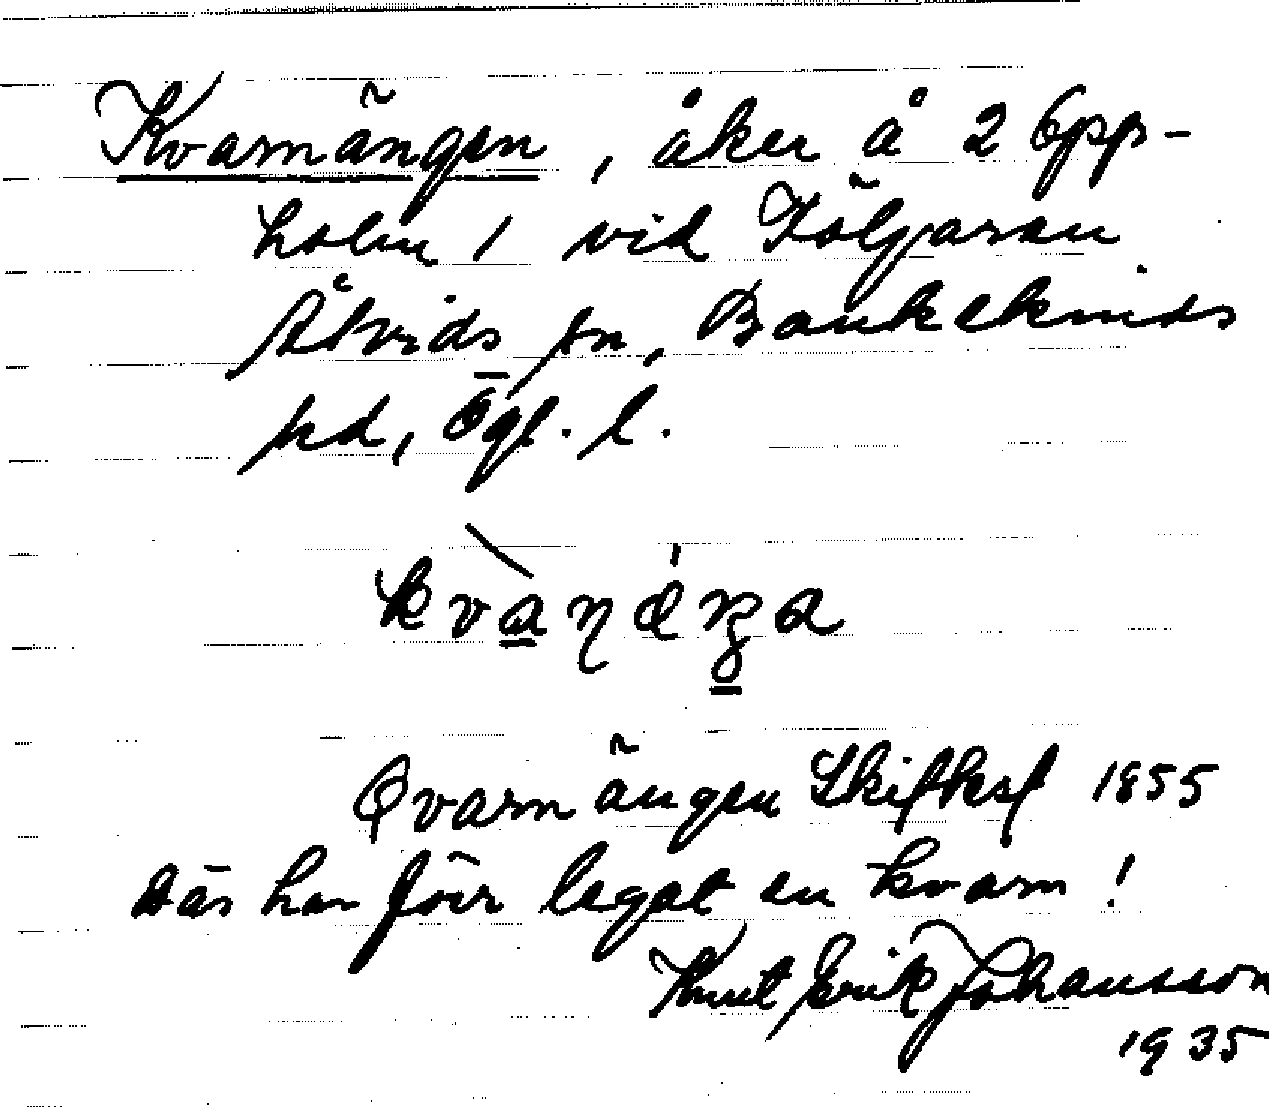 Kvarnängen, åker å 2 Opp-
holm / vid Följaren
Åtvids sn, Bankekinds
hd, Ögl. l.
Qvarnängen Skifksf 1855
Där har förr legat en kvarn!
Knut Erik Johansson
1935